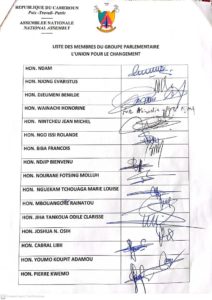 REPUBLIQUE DU CAMEROUN
Paix -Travail- Patrie
ASSEMBLEE NATIONALE
NATIONAL ASSEMBLY
LISTE DES MEMBRES DU GROUPE PARLEMENTAIRE
L'UNION POUR LE CHANGEMENT
HON. NDAM
HON. NJONG EVARISTUS
HON. DJEUMENI BENILDE
HON. WAINACHI HONORINE
HON. NINTCHEU JEAN MICHEL
HON. NGO ISSI ROLANDE
HON. BIBA FRANCOIS
HON. NDIP BIENVENU
HON. NOURANE FOTSING MOLLUH
HON. NGUIEKAM TCHOUAGA MARIE LOUISE
HON. MBOUANGORE RAINATOU
HON. JIHA TANKOUA ODILE CLARISSE
HON. JOSHUA N. OSIH
HON. CABRAL LIBII
HON. YOUMO KOUPIT ADAMOU
HON. PIERRE KWEMO